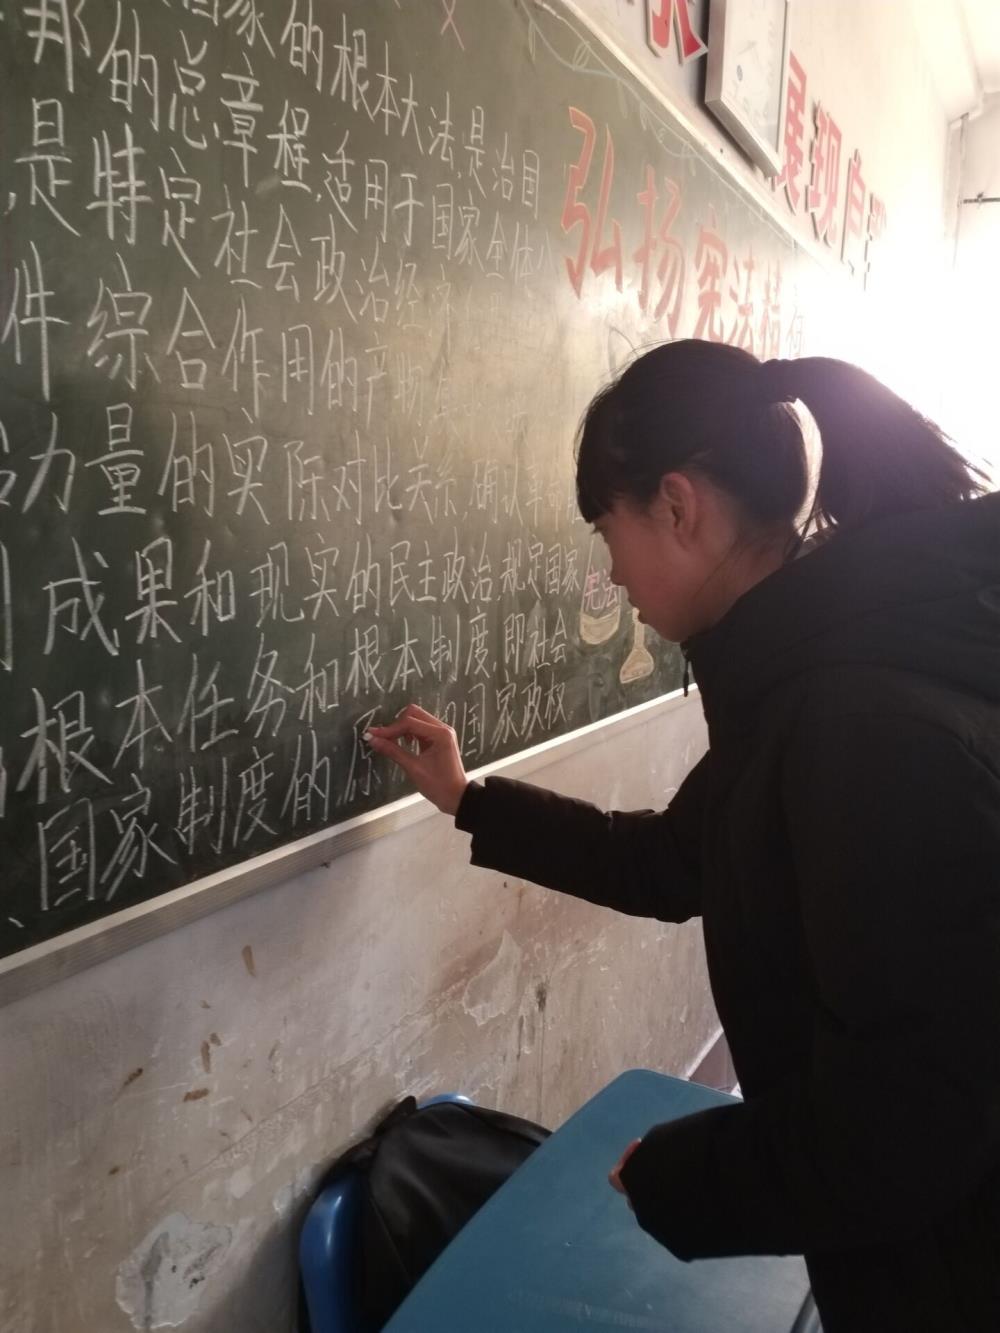 展现自
弘扬宪法精
国家的根本大法,是治国
邦的总章程,适用于国家全体
是特定社会政治经
件综合作用的产物
力量的实际对比关系,确认革命
成果和现实的民主政治,规定国家
根本任务和根本制度,即社会
、国家制度的原 和国家政权
宪法